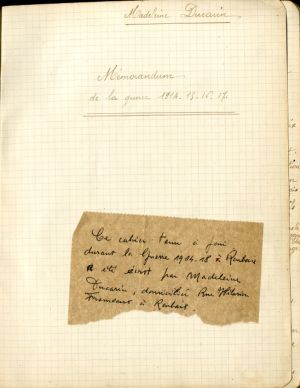 Madeleine Ducarin
Mémorandum
de la guerre 1914-15-16-17.
Ce cahier tenu à jour
durant la Guerre 1914-18 à Roubaix
a été écrit par Madeleine
Ducarin, domiciliée Rue
à Roubaix.